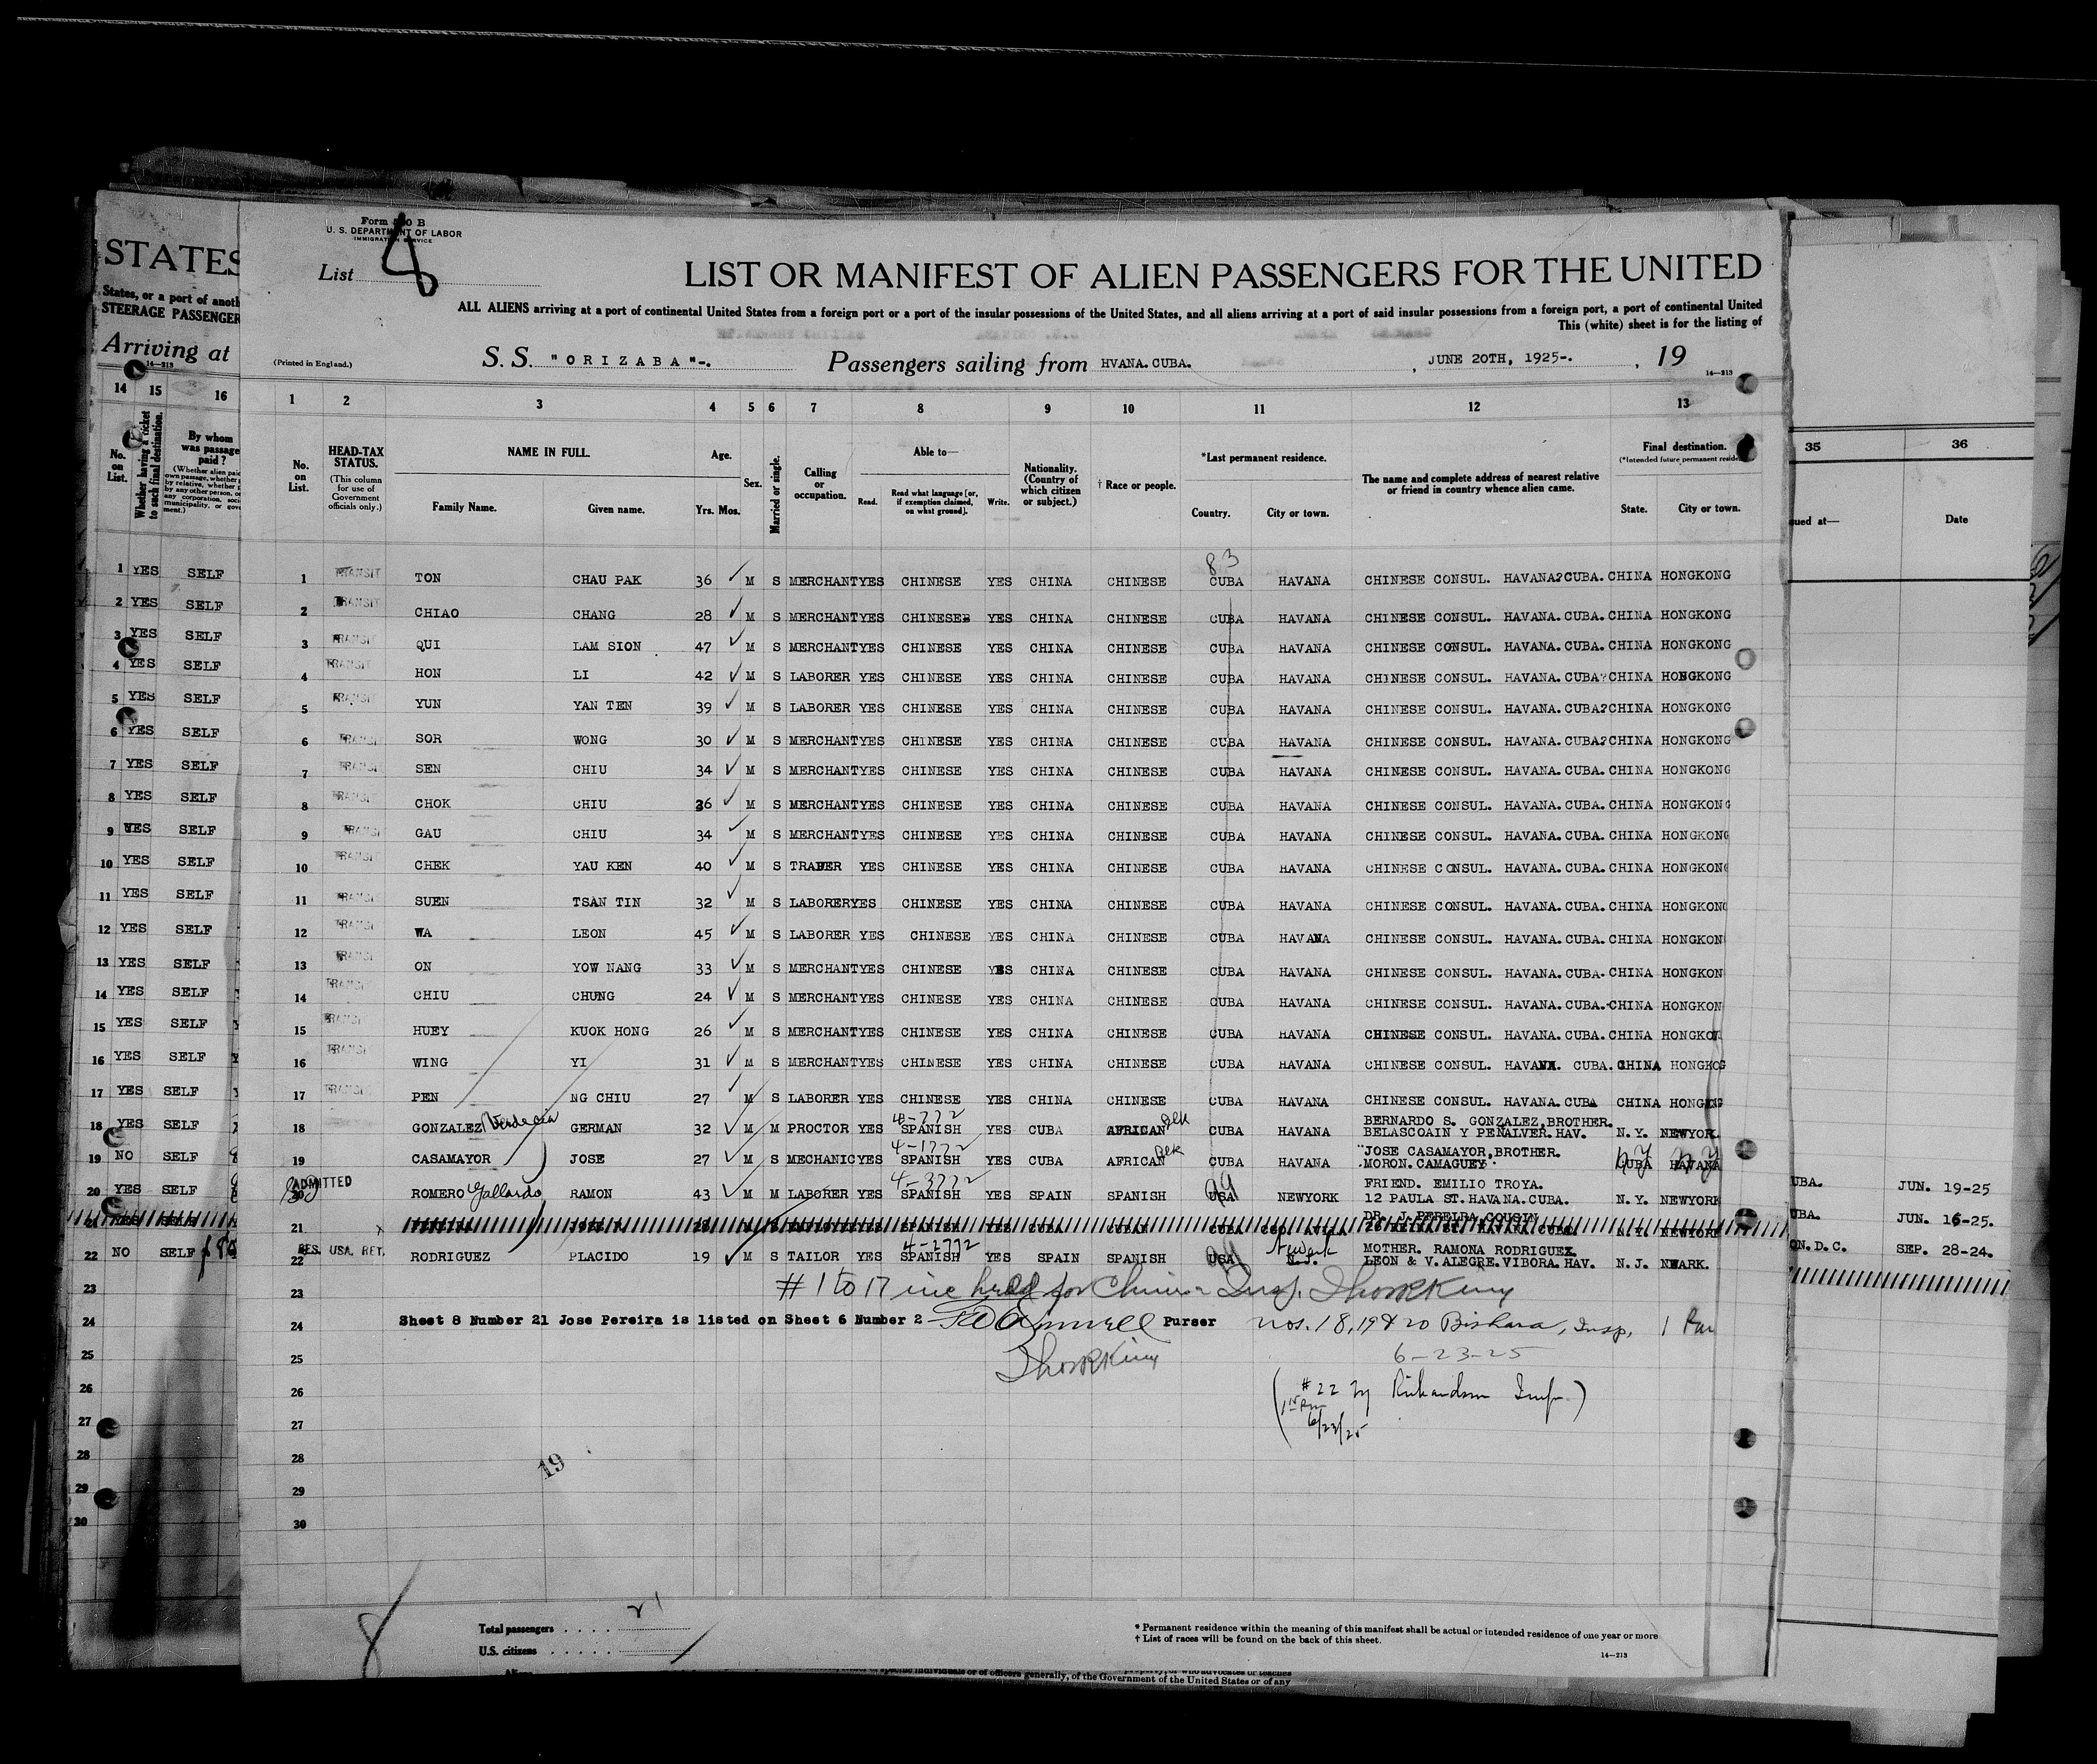 Form 500 B
U. S. DEPARTMENT OF LABOR
IMMIGRATION SERVICE
List 8
LIST OR MANIFEST OF ALIEN PASSENGERS FOR THE UNITED
ALL ALIENS arriving at a port of continental United States from a foreign port or a port of the insular possessions of the United States, and all aliens arriving at a port of said insular possessions from a foreign port, a port of continental United
This (white) sheet is for the listing of
(Printed in England.) S. S. "ORIZABA"-. Passengers sailing from HVANA.CUBA. , JUNE 20TH, 1925-. , 19
14—213
STATES
States, or a port of anoth
STEERAGE PASSENGER
Arriving at
14—213
14 15 16
No. on List. Whether having a ticket to such final destination. By whom was passage paid?
1 2 3 4 5 6 7 8 9 10 11 12 13
No. on List. HEAD-TAX STATUS. (This column for use of Government officials only.) NAME IN FULL. Family Name. Given name. Age. Yrs. Mos. Sex. Married or single. Calling or occupation. Able to— Read. Read what language [or, if exemption claimed, on what ground]. Write. Nationality. (Country of which citizen or subject.) † Race or people. *Last permanent residence. Country. City or town. The name and complete address of nearest relative or friend in country whence alien came. Final destination. (*Intended future permanent reside State. City or town.
35 36
sued at— Date
83
1 YES SELF 1 TRANSIT TON CHAU PAK 36 M S MERCHANT YES CHINESE YES CHINA CHINESE CUBA HAVANA CHINESE CONSUL. HAVANA?CUBA. CHINA HONGKONG
2 YES SELF 2 TRANSIT CHIAO CHANG 28 M S MERCHANT YES CHINESE YES CHINA CHINESE CUBA HAVANA CHINESE CONSUL. HAVANA.CUBA. CHINA HONGKONG
3 YES SELF 3 TRANSIT QUI LAM SION 47 M S MERCHANT YES CHINESE YES CHINA CHINESE CUBA HAVANA CHINESE CONSUL. HAVANA.CUBA. CHINA HONGKONG
4 YES SELF 4 TRANSIT HON LI 42 M S LABORER YES CHINESE YES CHINA CHINESE CUBA HAVANA CHINESE CONSUL. HAVANA.CUBA? CHINA HONGKONG
5 YES SELF 5 TRANSIT YUN YAN TEN 39 M S LABORER YES CHINESE YES CHINA CHINESE CUBA HAVANA CHINESE CONSUL. HAVANA.CUBA? CHINA HONGKONG
6 YES SELF 6 TRANSIT SOR WONG 30 M S MERCHANT YES CHINESE YES CHINA CHINESE CUBA HAVANA CHINESE CONSUL. HAVANA.CUBA? CHINA HONGKONG
7 YES SELF 7 TRANSIT SEN CHIU 34 M S MERCHANT YES CHINESE YES CHINA CHINESE CUBA HAVANA CHINESE CONSUL. HAVANA.CUBA. CHINA HONGKONG
8 YES SELF 8 TRANSIT CHOK CHIU 36 M S MERCHANT YES CHINESE YES CHINA CHINESE CUBA HAVANA CHINESE CONSUL. HAVANA.CUBA. CHINA HONGKONG
9 YES SELF 9 TRANSI GAU CHIU 34 M S MERCHANT YES CHINESE YES CHINA CHINESE CUBA HAVANA CHINESE CONSUL. HAVANA.CUBA. CHINA HONGKONG
10 YES SELF 10 TRANSIT CHEK YAU KEN 40 M S TRADER YES CHINESE YES CHINA CHINESE CUBA HAVANA CHINESE CONSUL. HAVANA.CUBA. CHINA HONGKONG
11 YES SELF 11 TRANSI SUEN TSAN TIN 32 M S LABORER YES CHINESE YES CHINA CHINESE CUBA HAVANA CHINESE CONSUL. HAVANA.CUBA. CHINA HONGKONG
12 YES SELF 12 TRANSI WA LEON 45 M S LABORER YES CHINESE YES CHINA CHINESE CUBA HAVANA CHINESE CONSUL. HAVANA.CUBA. CHINA HONGKON
13 YES SELF 13 TRANSI ON YOW NANG 33 M S MERCHANT YES CHINESE YES CHINA CHINESE CUBA HAVANA CHINESE CONSUL. HAVANA.CUBA. CHINA HONGKON
14 YES SELF 14 TRANSI CHIU CHUNG 24 M S MERCHANT YES CHINESE YES CHINA CHINESE CUBA HAVANA CHINESE CONSUL. HAVANA.CUBA. CHINA HONGKON
15 YES SELF 15 TRANSI HUEY KUOK HONG 26 M S MERCHANT YES CHINESE YES CHINA CHINESE CUBA HAVANA CHINESE CONSUL. HAVANA.CUBA. CHINA HONGKON
16 YES SELF 16 TRANSI WING YI 31 M S MERCHANT YES CHINESE YES CHINA CHINESE CUBA HAVANA CHINESE CONSUL. HAVANA. CUBA. CHINA HONGKOG
17 YES SELF 17 TRANSIT PEN NG CHIU 27 M S LABORER YES CHINESE YES CHINA CHINESE CUBA HAVANA CHINESE CONSUL. HAVANA.CUBA CHINA HONGKONG
18 YES SELF 18 GONZALEZ GERMAN 32 M M PROCTOR YES SPANISH YES CUBA AFRICAN blk CUBA HAVANA BERNARDO S. GONZALEZ,BROTHER. BELASCOAIN Y PEÑALVER.HAV. N.Y. NEWYOR.
4-1772
19 NO SELF 19 CASAMAYOR JOSE 27 M S MECHANIC YES SPANISH YES CUBA AFRICAN blk CUBA HAVANA JOSE CASAMAYOR,BROTHER. MORON.CAMAGUEY CUBA HAVANA NY NY
4-3772
20 YES SELF ADMITTED 20 ROMERO Gallardo RAMON 43 M M LABORER YES SPANISH YES SPAIN SPANISH USA 99 NEWYORK FRIEND. EMILIO TROYA. 12 PAULA ST.HAVANA.CUBA. N.Y. NEWYORK
21 DR. J.PEREIRA COUSIN NEWYORK
4-2772
22 NO SELF 22 RES. USA. RET. RODRIGUEZ PLACIDO 19 M S TAILOR YES SPANISH YES SPAIN SPANISH USA 99 Newark N.J. MOTHER. RAMONA RODRIGUEZ. LEON & V.ALEGRE.VIBORA.HAV. N.J. NWARK.
UBA. JUN. 19-25
UBA. JUN. 16-25.
ON.D.C. SEP. 28-24.
23 23 # 1 to 17 inc held for Chinese Insp.
24 24 Sheet 8 Number 21 Jose Pereira is listed on Sheet 6 Number 2 Purser Nos. 18, 19 & 20 Bishara, Insp,
25 25 6-23-25
26 26 (#22 by Richardson Insp.)
27 27 6/23/25
28 28
29 29 19
30 30
8
Total passengers . . . . . 21
U.S. citizens . . . . .
* Permanent residence within the meaning of this manifest shall be actual or intended residence of one year or more
† List of races will be found on the back of this sheet.
14—213
Aliens
individuals or of officers generally, of the Government of the United States or of any